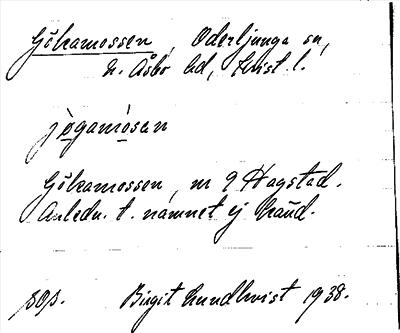 Gökamossen, Oderljunga sn,
n. Åsbo hd, Krist. l.
jögamósan
Gökamossen, nr 9 Hagstad.
Anledn. t. namnet ej känd.
Birgit Lundkvist 1938.